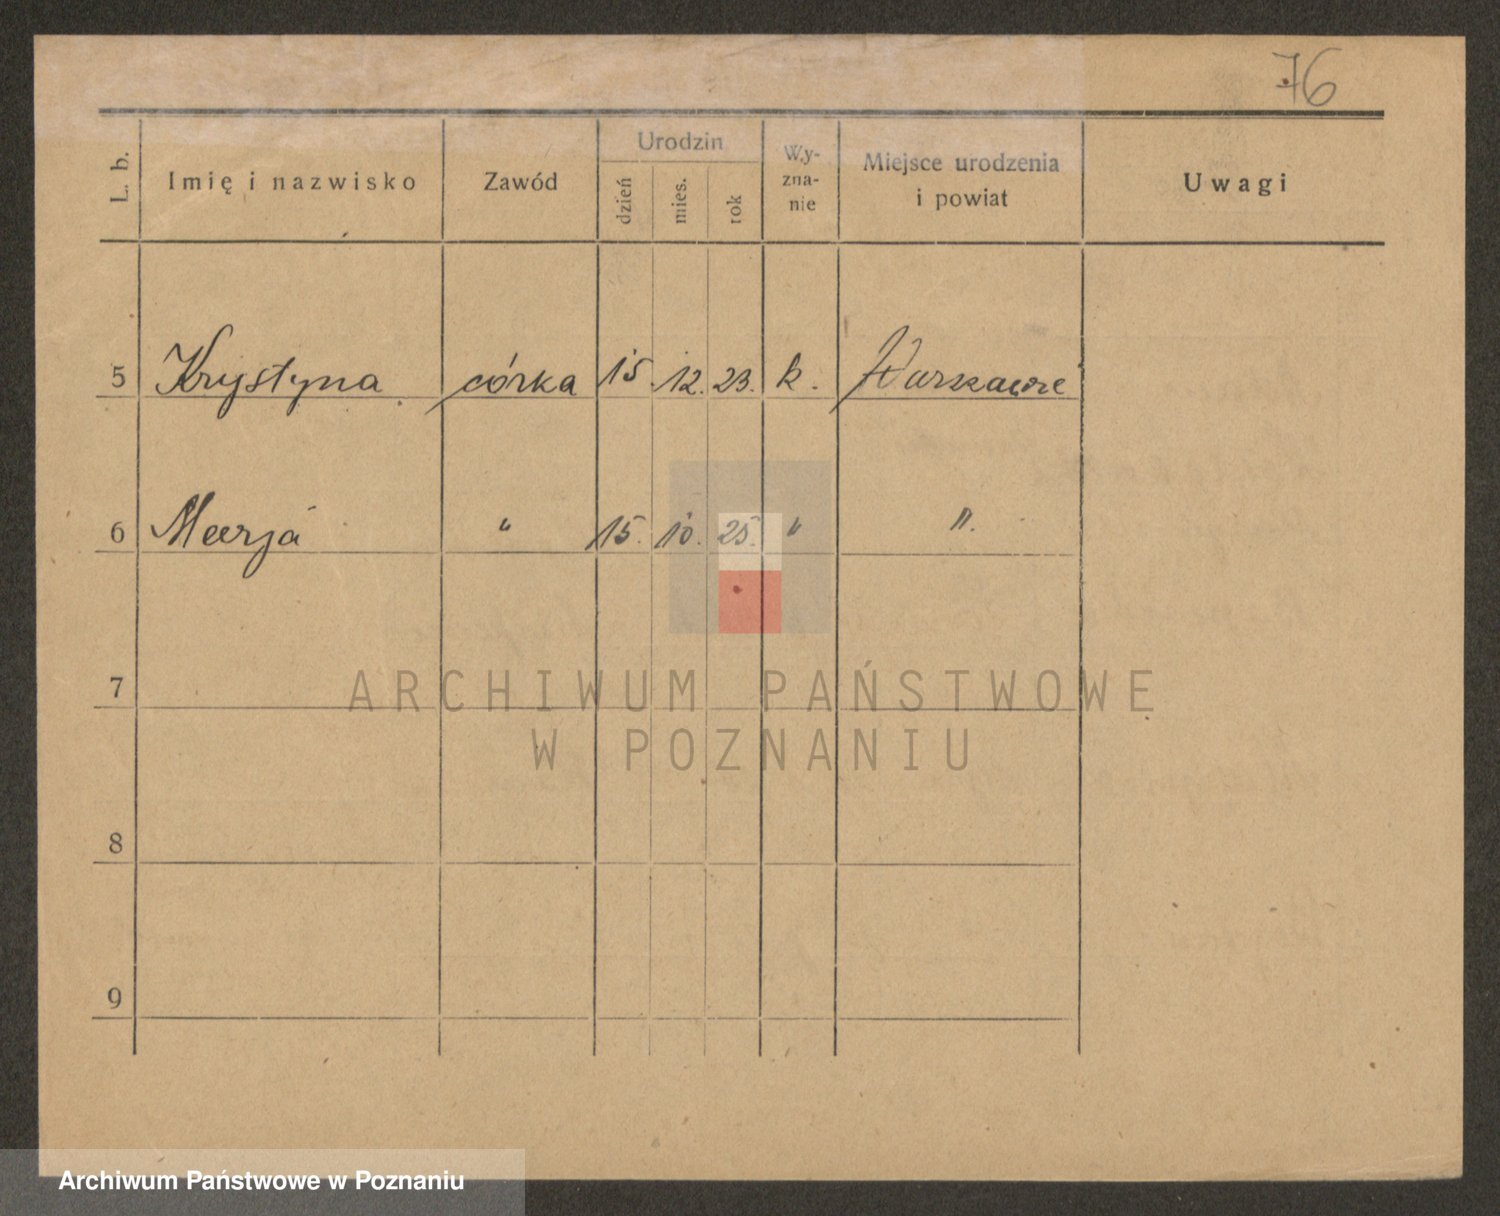 76
L. b.
Imię i nazwisko
Zawód
Urodzin
dzień
mies.
rok
Wy-
zna-
nie
Miejsce urodzenia
i powiat
Uwagi
5 Krystyna córka 15. 12. 23. k. Warszawie
6 Marja " 15. 10. 25. " ".
7
ARCHIWUM PAŃSTWOWE
W POZNANIU
8
9
Archiwum Państwowe w Poznaniu